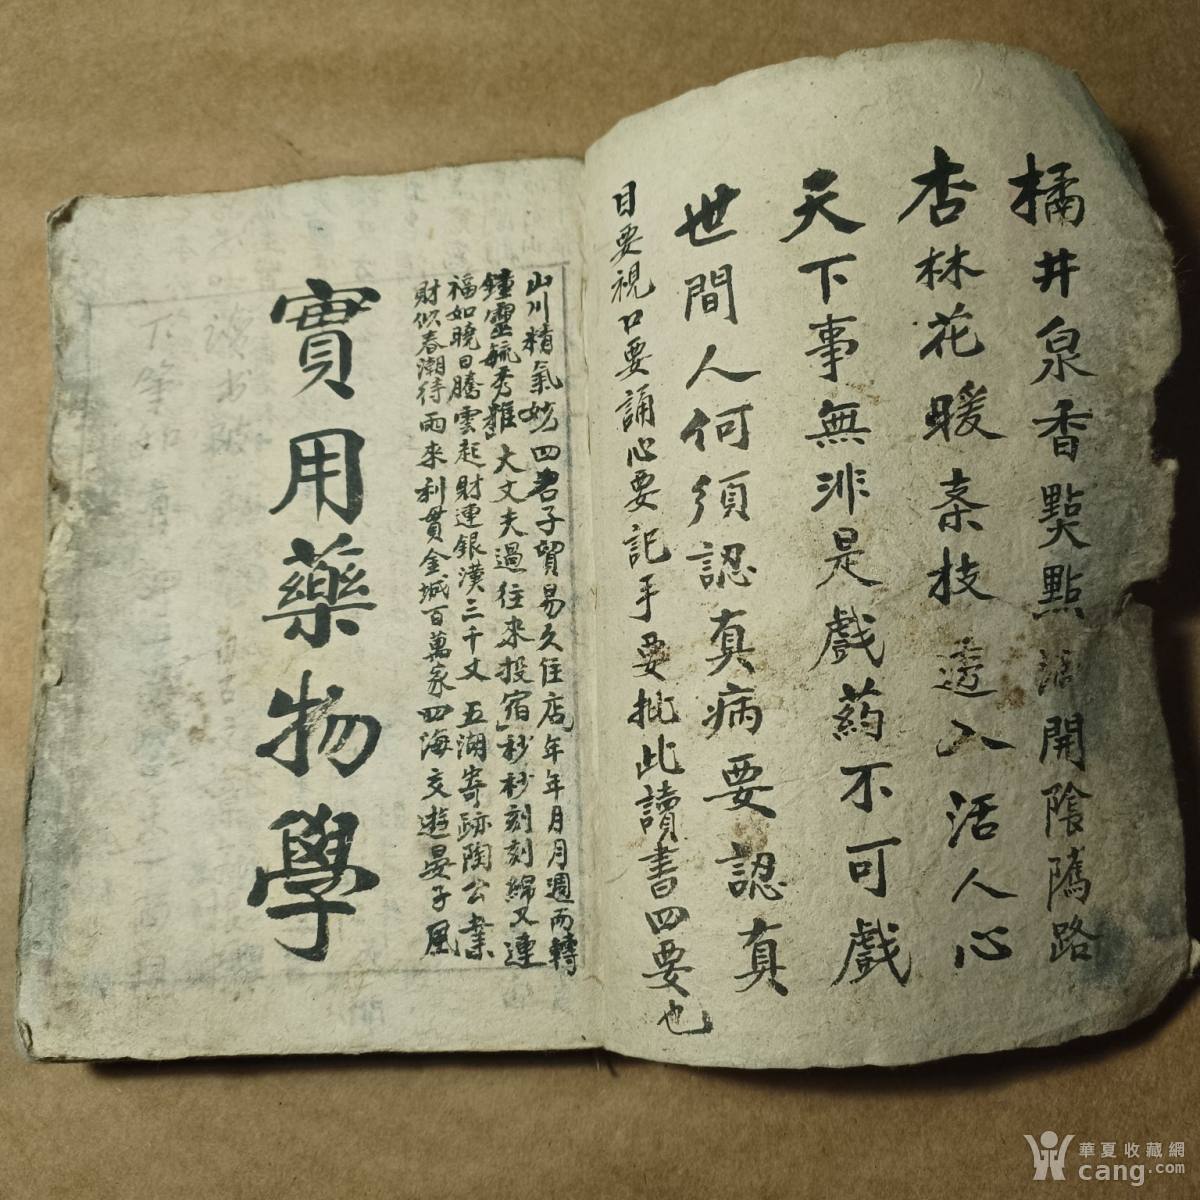 橘井泉香點點滴開陰隲路
杏林花暖枝枝透入活人心
天下事無非是戲葯不可戲
世間人何須認真病要認真
目要視口要誦心要記手要批此讀書四要也
山川精氣妙四君子貿易久住店年年月月週而轉
鍾靈毓秀雖大文夫過往來投宿秒秒刻刻綿又連
福如曉日騰雲起財連銀漢三千丈五湖寄跡陶公業
財似春潮待雨來利貫金城百萬家四海交遊晏子風
實用藥物學
華夏收藏網
cang.com